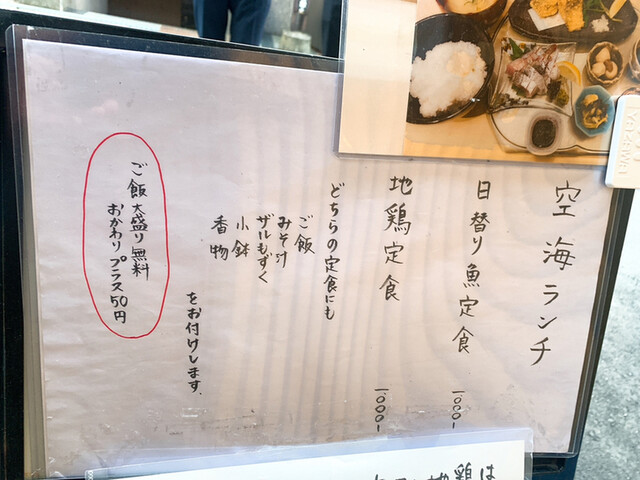 空海ランチ
日替り魚定食 1,000-
地鶏定食 1,000-
どちらの定食にも
ご飯
みそ汁
ザルもずく
小鉢
香物
をお付けします.
ご飯大盛り無料
おかわりプラス50円
地鶏は